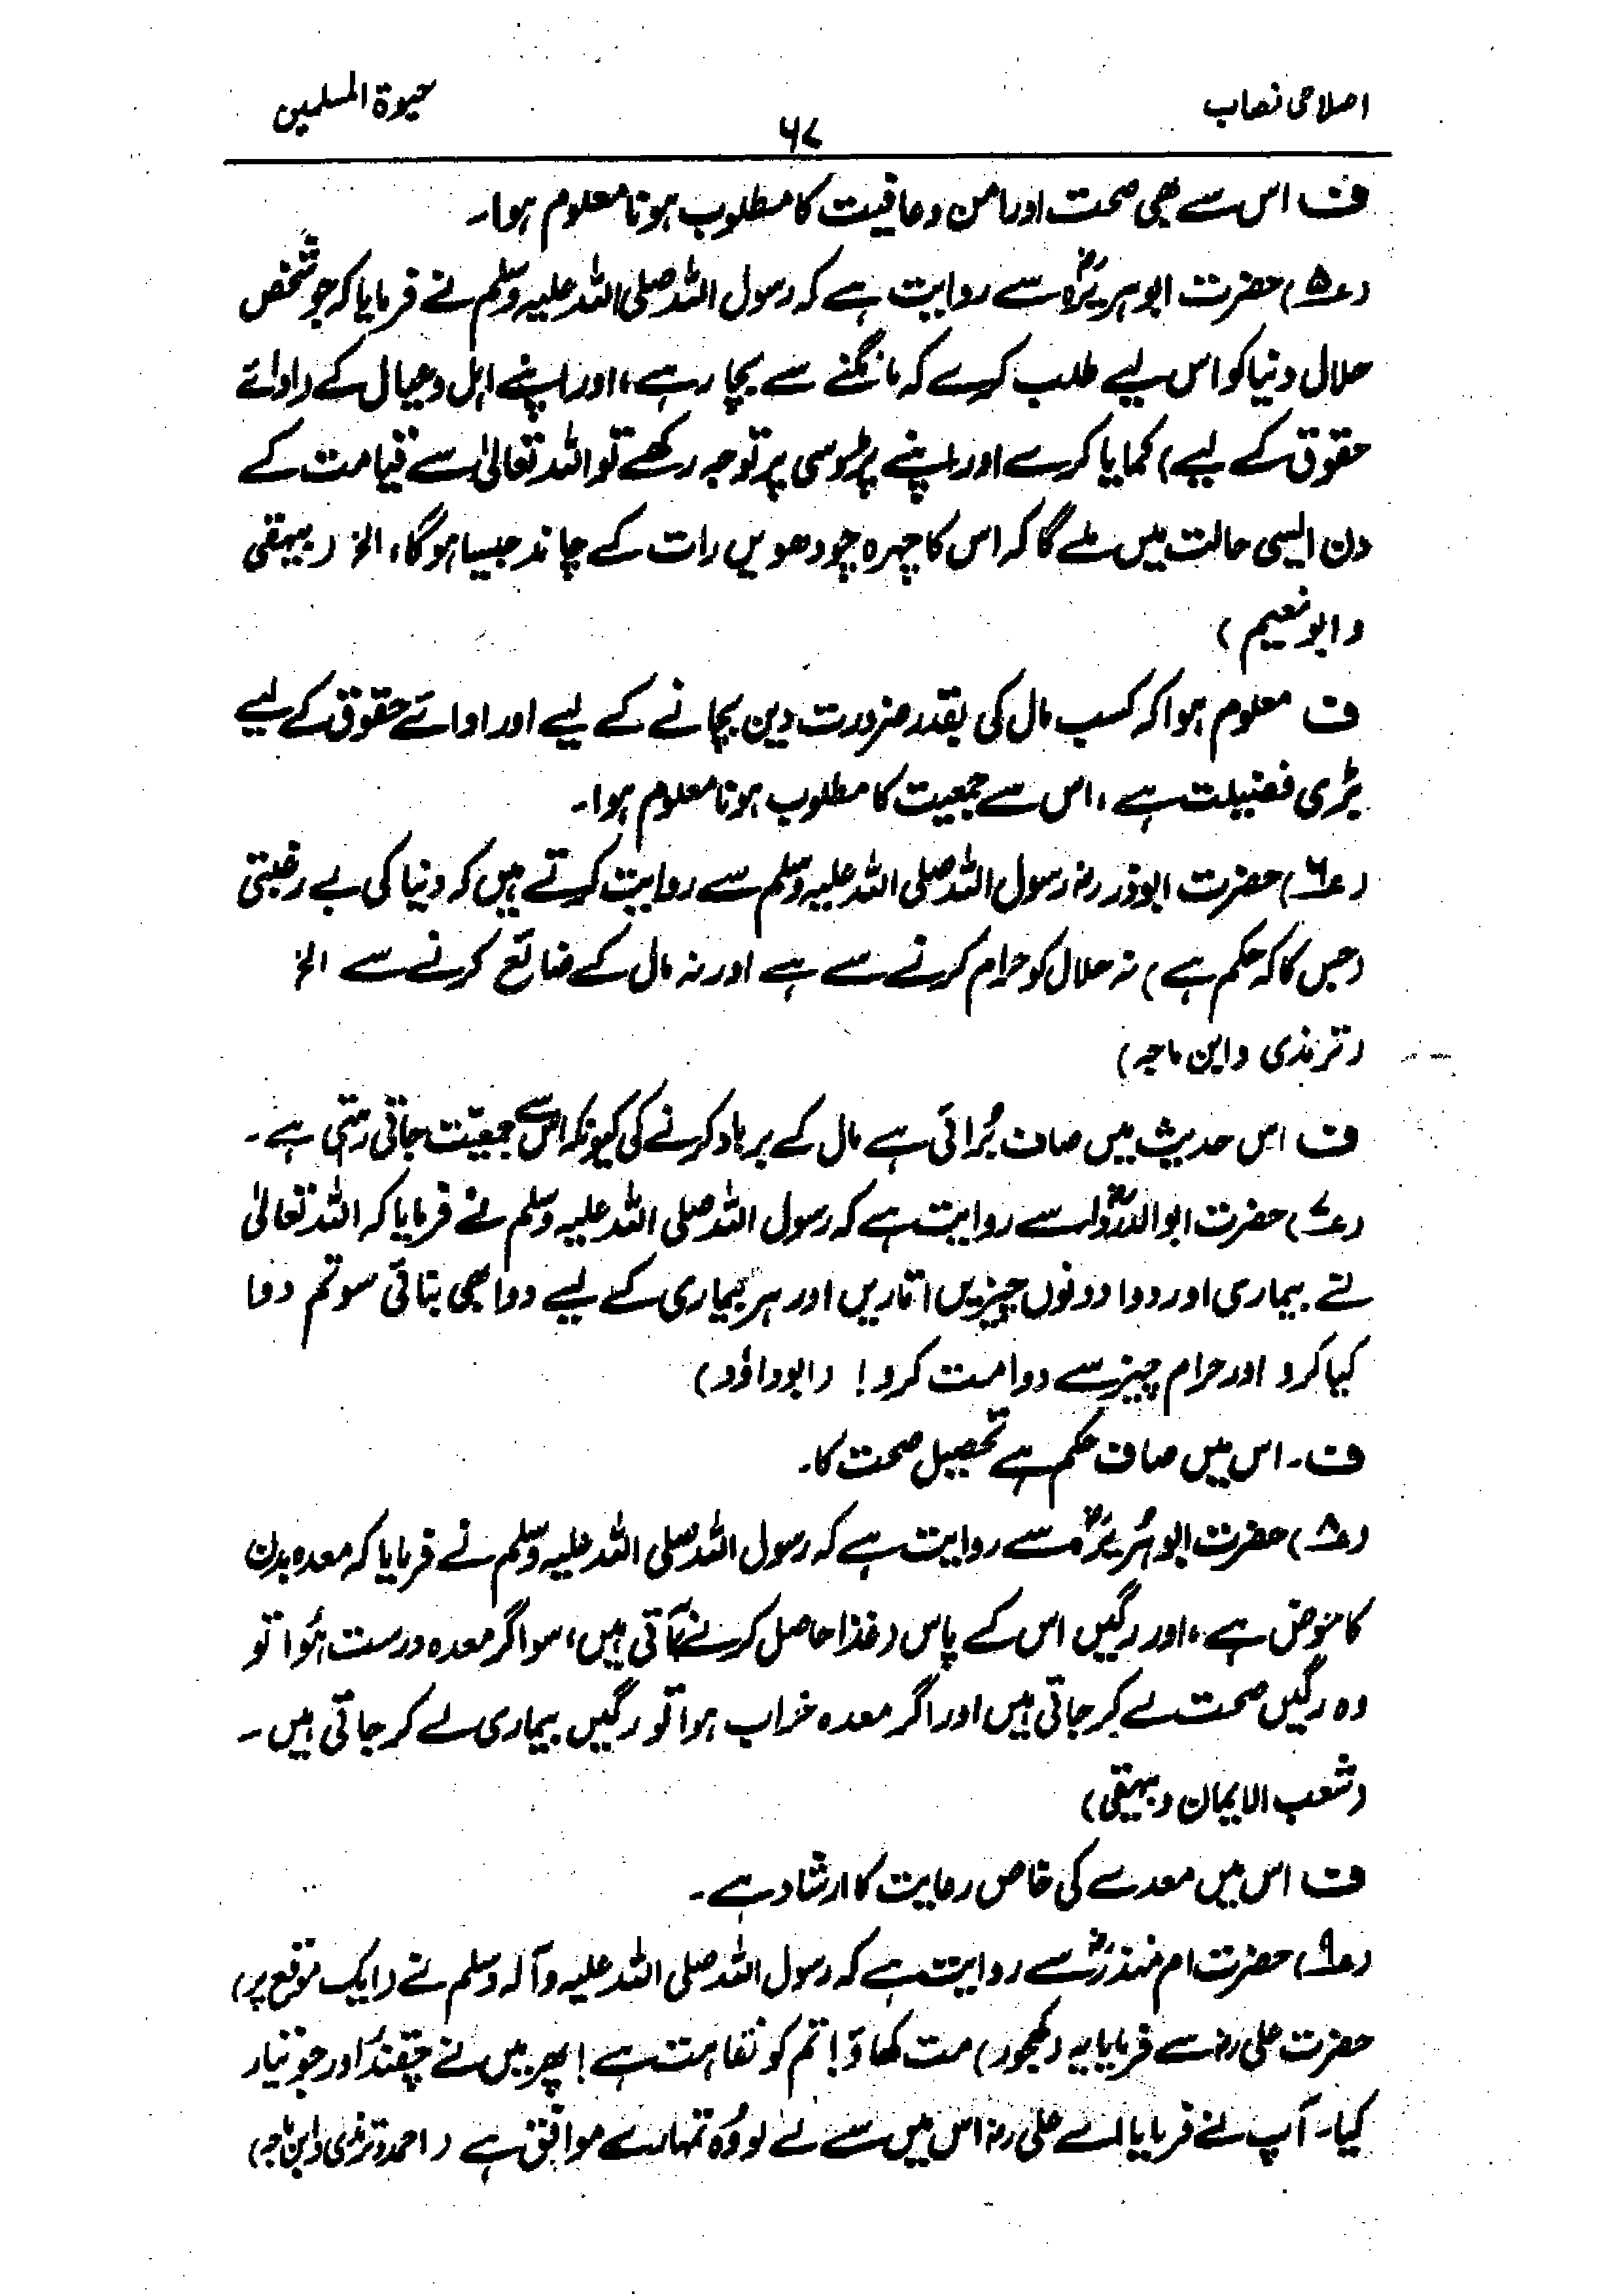 اصلاحی نصاب
۶۷
حیوۃ المسلمین
ف اس سے بھی صحت اور امن و عافیت کا مطلوب ہونا معلوم ہوا۔
(۵) حضرت ابو ہریرہؓ سے روایت ہے کہ رسول اللہ صلی اللہ علیہ وسلم نے فرمایا کہ جو شخص
حلال دنیا کو اس لیے طلب کرے کہ مانگنے سے بچا رہے، اور اپنے اہل و عیال کے (ادائے
حقوق کے لیے) کمایا کرے اور اپنے پڑوسی پر توجہ رکھے تو اللہ تعالیٰ سے قیامت کے
دن ایسی حالت میں ملے گا کہ اس کا چہرہ چودھویں رات کے چاند جیسا ہوگا، الخ (بیہقی
و ابو نعیم)
ف معلوم ہوا کہ کسب مال کی بقدر ضرورت دین بچانے کے لیے اور ادائے حقوق کے لیے
بڑی فضیلت ہے، اس سے جمعیت کا مطلوب ہونا معلوم ہوا۔
(۶) حضرت ابوذر رضہ رسول اللہ صلی اللہ علیہ وسلم سے روایت کرتے ہیں کہ دنیا کی بے رغبتی
(جس کا کہ حکم ہے) نہ حلال کو حرام کرنے سے ہے اور نہ مال کے ضائع کرنے سے الخ
(ترمذی و ابن ماجہ)
ف اس حدیث میں صاف بُرائی ہے مال کے برباد کرنے کی کیونکہ اس سے جمعیّت جاتی رہتی ہے۔
(۷) حضرت ابوالدرداؓ سے روایت ہے کہ رسول اللہ صلی اللہ علیہ وسلم نے فرمایا کہ اللہ تعالیٰ
نے بیماری اور دوا دونوں چیزیں اتاریں اور ہر بیماری کے لیے دوا بھی بنائی سو تم دوا
کیا کرو اور حرام چیز سے دوا مت کرو! (ابوداؤد)
ف۔ اس میں صاف حکم ہے تحصیل صحت کا۔
(۸) حضرت ابو ہُریرہؓ سے روایت ہے کہ رسول اللہ صلی اللہ علیہ وسلم نے فرمایا کہ معدہ بدن
کا حوض ہے، اور رگیں اس کے پاس (غذا حاصل کرنے) آتی ہیں، سو اگر معدہ درست ہُوا تو
وہ رگیں صحت لے کر جاتی ہیں اور اگر معدہ خراب ہوا تو رگیں بیماری لے کر جاتی ہیں۔
(شعب الایمان و بیہقی)
ف اس میں معدے کی خاص رعایت کا ارشاد ہے۔
(۹) حضرت ام منذرؓ سے روایت ہے کہ رسول اللہ صلی اللہ علیہ وآلہ وسلم نے (ایک موقع پر)
حضرت علی رضہ سے فرمایا یہ (کھجور) مت کھاؤ! تم کو نقاہت ہے! پھر میں نے چقندر اور جو تیار
کیا۔ آپ نے فرمایا اے علی رضہ اس میں سے لے لو وُہ تمہارے موافق ہے (احمد و ترمذی و ابن ماجہ)